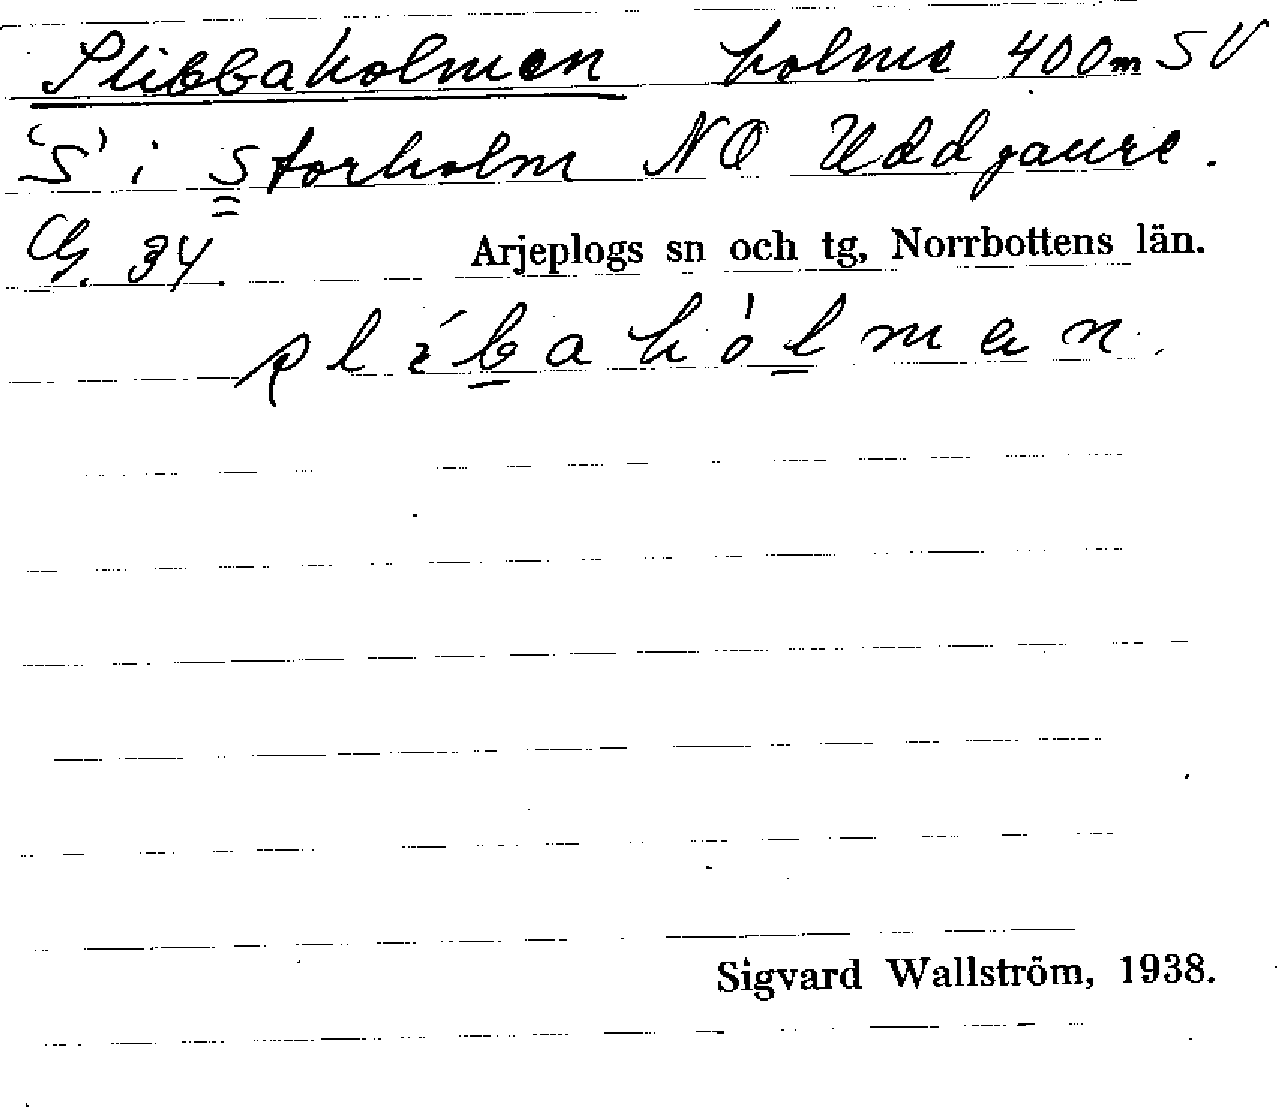 Plibbaholmen holme 400 m SV
"S" i Storholm NO Uddjaure.
G. 34. Arjeplogs sn och tg, Norrbottens län.
plíbahòlmen.
Sigvard Wallström, 1938.